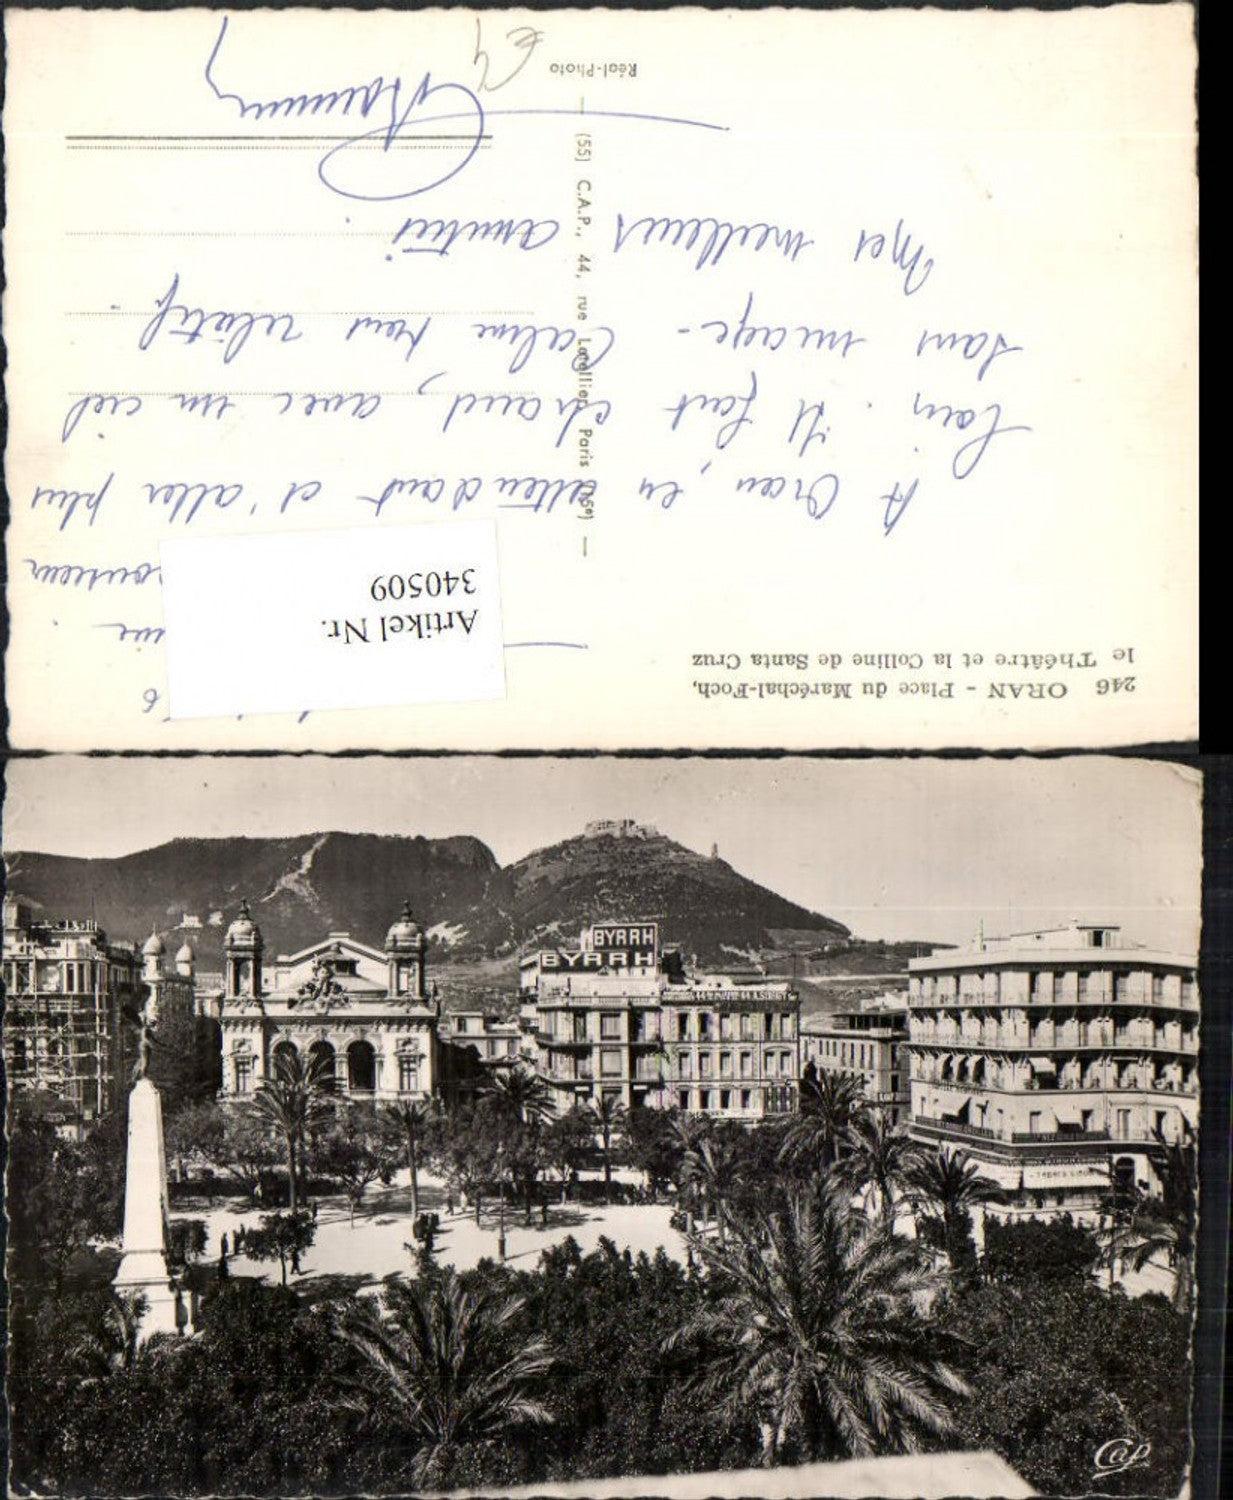 246 ORAN - Place du Maréchal-Foch,
le Théâtre et la Colline de Santa Cruz
Artikel Nr.
340509
A Oran, en attendant d'aller plus
loin. Il fait chaud, avec un ciel
sans nuage - Calme très relatif.
Mes meilleures amitiés.
(55) C.A.P., 44, rue Letellier, Paris (15e) —
Réal-Photo
€4
BYRRH
BYRRH
Cap